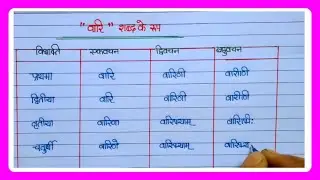 "वारि" शब्द के रूप
विभक्ति एकवचन द्विवचन बहुवचन
प्रथमा वारि वारिणी वारीणि
द्वितीया वारि वारिणी वारीणि
तृतीया वारिणा वारिभ्याम् वारिभिः
चतुर्थी वारिणे वारिभ्याम् वारिभ्य